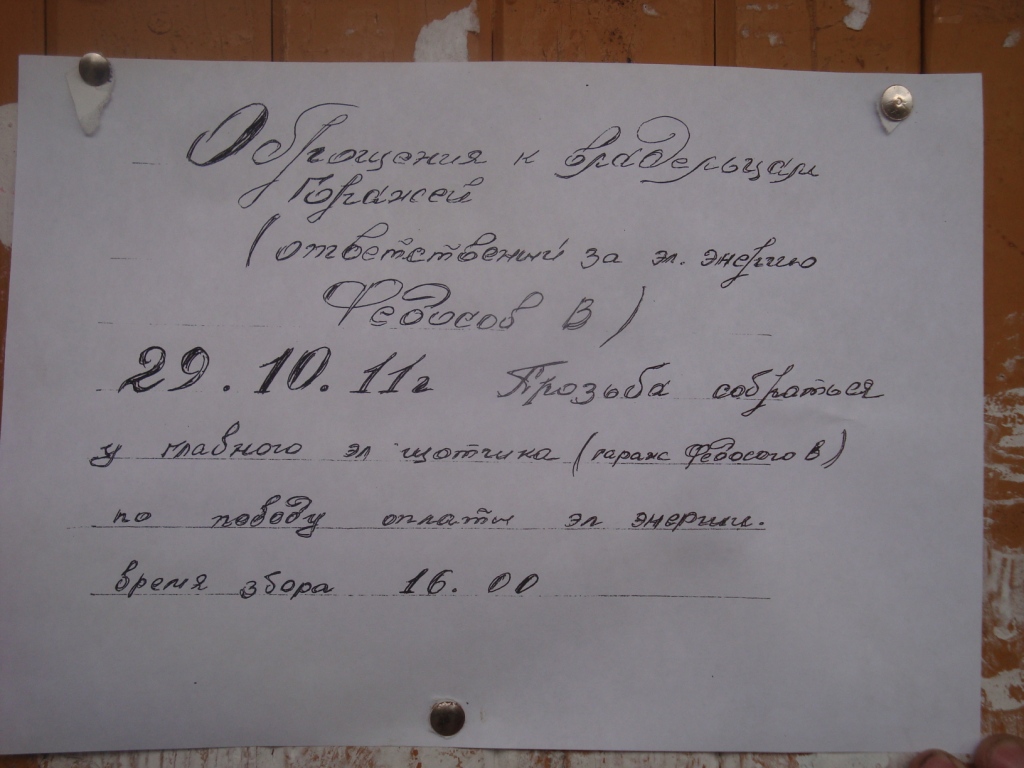 Оброщения к врадельцам
Горажей
(ответственый за эл. энергию
Федосов В)
29.10.11г Прозьба собраться
у главного эл щотчика (гараж Федосого В)
по поводу оплаты эл энергии.
время збора 16.00